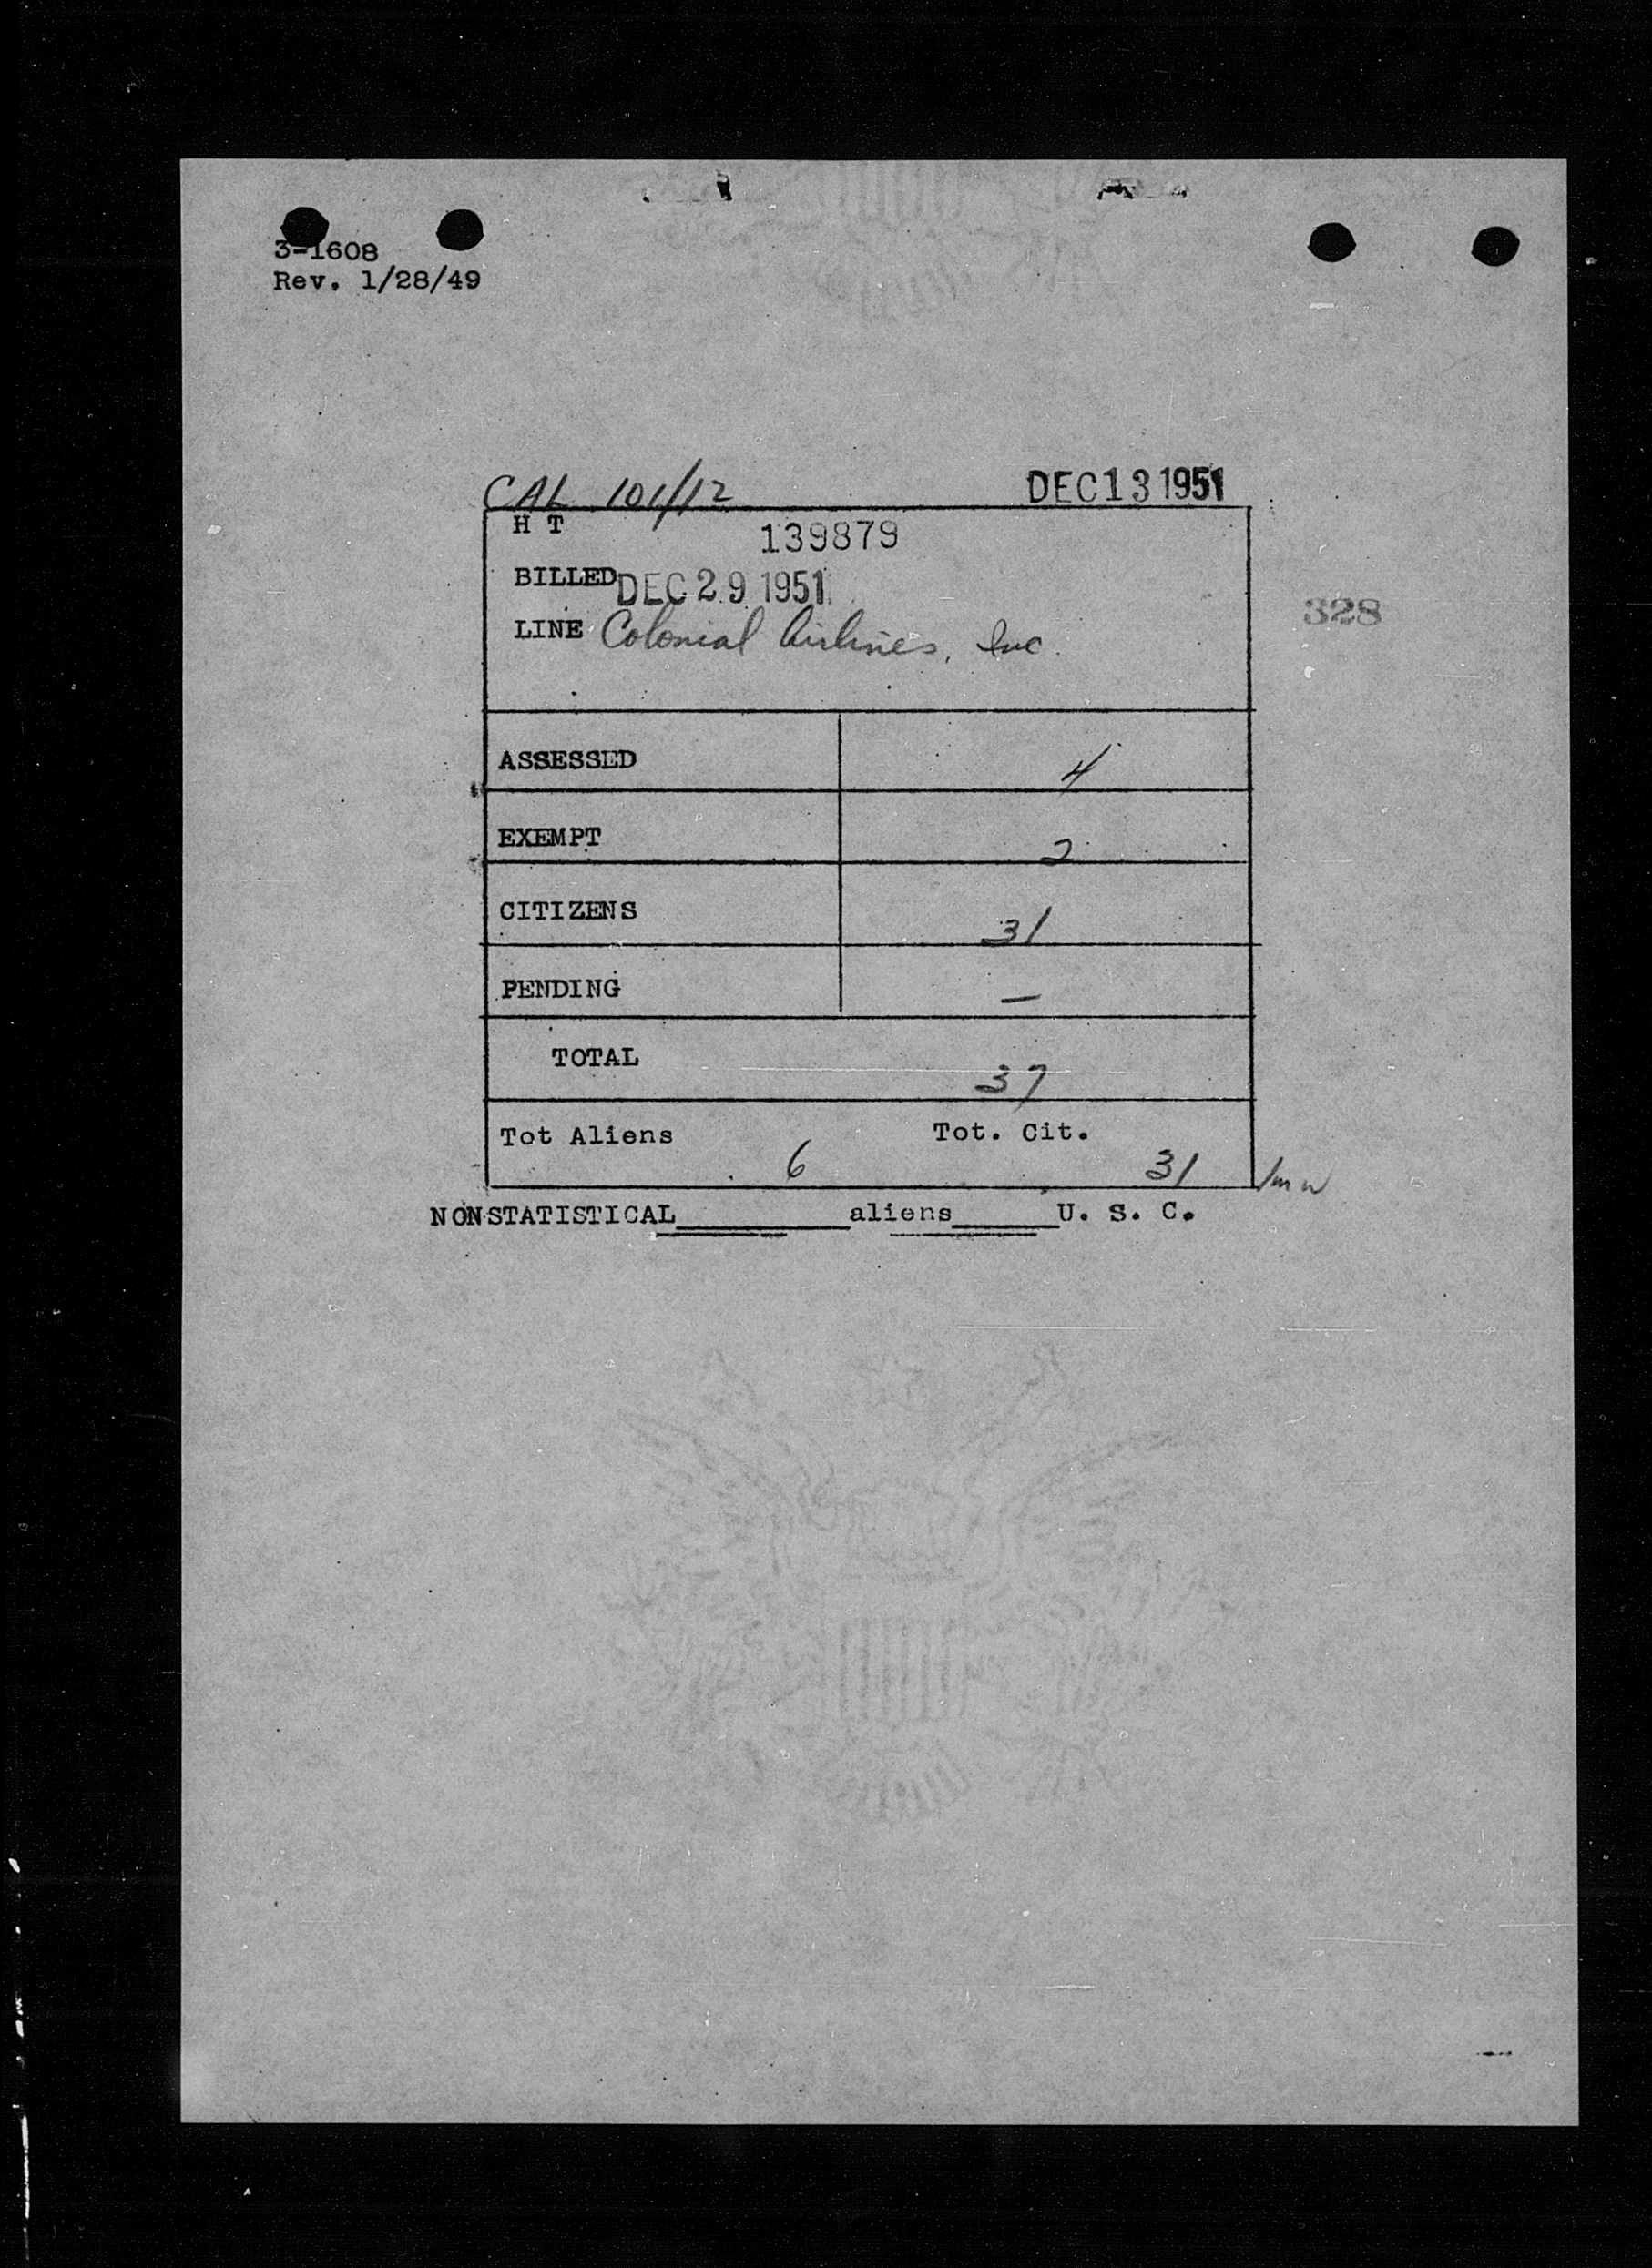 3-1608
Rev. 1/28/49
CAL 101/12 DEC 13 1951
H T 139879
BILLED DEC 29 1951
328
LINE Colonial Airlines, Inc.
ASSESSED 4
EXEMPT 2
CITIZENS 31
PENDING —
TOTAL 37
Tot Aliens 6 Tot. Cit. 31
NONSTATISTICAL________aliens_____U. S. C.